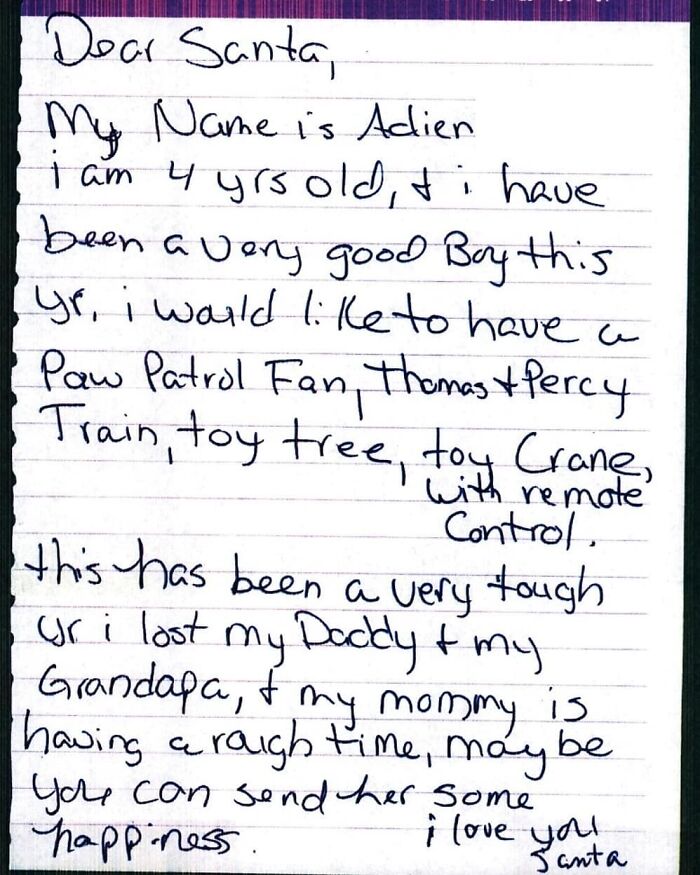 Dear Santa,
My Name is Adien
i am 4 yrs old, & i have
been a very good Boy this
yr. i would like to have a
Paw Patrol Fan, Thomas & Percy
Train, toy tree, toy Crane,
with remote
Control.
this has been a very tough
yr i lost my Daddy & my
Grandapa, & my mommy is
having a rough time, maybe
you can send her some
happiness.
i love you
Santa